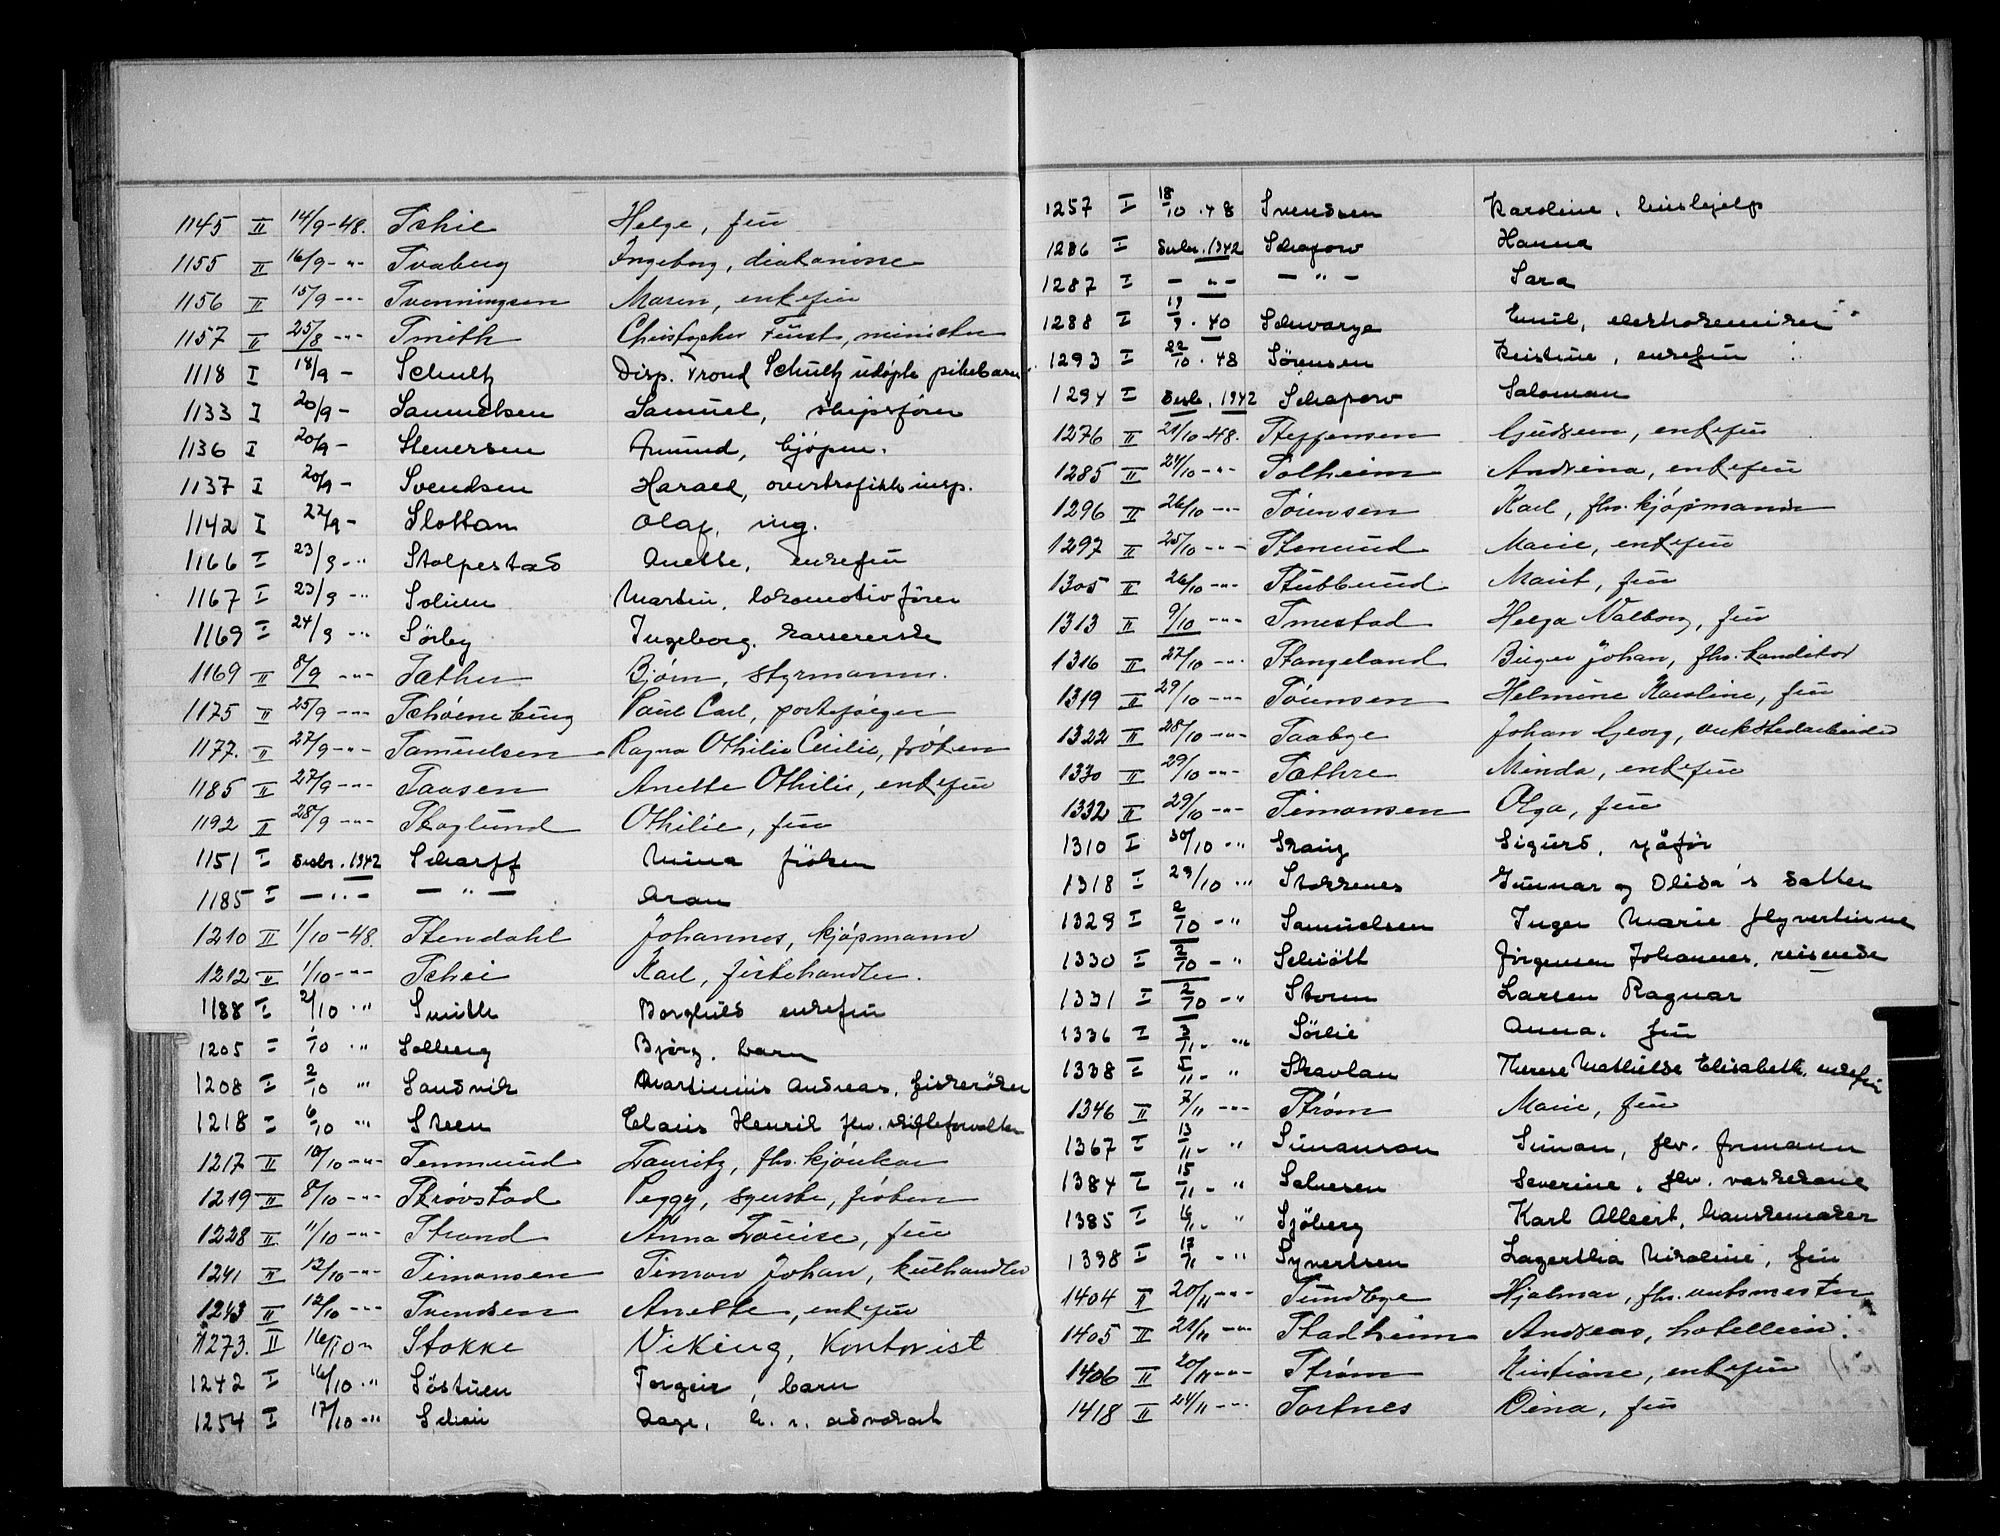 1145 II 14/9-48. Schie Helge, fru
1155 II 16/9 - „ - Svaberg Ingeborg, diakonisse
1156 II 15/9 - „ - Svenningsen Maren, enkefru
1157 II 25/8 - „ - Smith Christopher Fürst, minister
1118 I 18/9 - Schultz Disp. Trond Schultz udøpte pikebarn
1133 I 20/9 - Samuelsen Samuel, skipsfører
1136 I 20/9 - Steversen Amund, kjøpm.
1137 I 20/9 - Svendsen Harald, overtrafikkinsp.
1142 I 22/9 - Slottam Olaf, ing.
1166 I 23/9 - „ Stolpestad Anette, enkefru
1167 I 23/9 - „ Solum Martin, lokomotivfører
1169 I 24/9 - „ Sørby Ingeborg, kassererske
1169 II 8/9 - „ - Sæther Bjørn, styrmann.
1175 II 25/9 - „ - Schöneburg Paul Carl, porteføger
1177. II 27/9 - „ - Samuelsen Ragna Othilie Cecilie, frøken
1185 II 27/9 - „ - Aasen Anette Othilie, enkefru
1192 II 28/9 - „ - Skoglund Othilie, fru
1151 I Desbr. 1942 Scharff Mina frøken
1185 I - „ - - „ - Aron
1210 II 1/10-48. Stendahl Johannes, kjøpmann
1212 II 1/10 - „ - Schei Karl, fiskehandler.
1188 I 2/10 „ Smith Borghild enkefru
1205 I 1/10 „ Solberg Bjørg, barn
1208 I 2/10 „ Sandvik Martinius Andreas, fiskerøker
1218 I 6/10 „ Steen Claus Henrik fhv. skifteforvalter
1217 II 10/10 - „ - Semmund Lauritz, fhv. kjørekar
1219 II 8/10 - „ - Skrövstad Peggy, syerske, frøken
1228 II 11/10 - „ - Strand Anna Louise, fru
1241 II 12/10 - „ - Simonsen Simon Johan, kulhandler
1243 II 12/10 - „ - Svendsen Anette, enkefru
1273. II 16/10 „ Stokke Viking, Kontorist
1242 I 16/10 „ Søstuen Torgeir, barn
1254 I 17/10 - „ Schøie Aage, h. r. advokat
1257 I 18/10 . 48 Svendsen Karoline, hushjelp
1286 I Desbr. 1942 Schapow Hanna
1287 I - „ - - „ - Sara
1288 I 19/9 . 40 Schwarze Emil, elektrokemiker
1293 I 22/10 . 48 Sørensen Kristine, enkefru
1294 I Desb. 1942 Schapow Saloman
1276 II 21/10-48. Steffensen Gudrun, enkefru
1285 II 24/10 - „ - Solheim Andrina, enkefru
1296 II 26/10 - „ - Sørensen Karl, fhv. kjøpmann
1297 II 25/10 - „ - Stenrud Marie, enkefru
1305 II 26/10 - „ - Stubberud Marit, fru
1313 II 9/10 - „ - Smestad Helga Valborg, fru
1316 II 27/10 - „ - Stangeland Birger Johan, fhv. konditor
1319 II 29/10 - „ - Sørensen Helmine Karoline, fru
1322 II 28/10 - „ - Saabye Johan Georg, verkstedarbeider
1330 II 29/10 - „ - Sæthre Minda, enkefru
1332 II 29/10 - „ - Simonsen Olga, fru
1310 I 30/10 „ Skaug Sigurd, sjåfør
1318 I 29/10 „ Stokkenes Gunnar og Olida's datter
1329 I 2/10 - „ Samuelsen Inger Marie flyvertinne
1330 I 2/10 - „ Schiött Jørgensen Johannes, reisende
1331 I 2/10 - „ Storm Larsen Ragnar
1336 I 3/11 - „ Sørlie Anna. fru
1338 I 5/11 - „ Skavlan Therese Mathilde Elisabeth, enkefru
1346 II 7/11 - „ - Strøm Marie, fru
1367 I 13/11 - „ Simonson Simon, fhv. formann
1384 I 15/11 - „ Salvesen Severine, fhv. vaskekone
1385 I 16/11 - „ Sjöberg Karl Albert, hanskemaker
1398 I 17/11 - „ Syvertsen Lagertha Nikoline, fru
1404 II 20/11 - „ - Sundbye Hjalmar, fhv. verksmester
1405 II 21/11 - „ - Stadheim Andreas, hotelleier.
1406 II 20/11 - „ - Strøm Kristiane, enkefru
1418 II 24/11 - „ - Sortnes Oina, fru